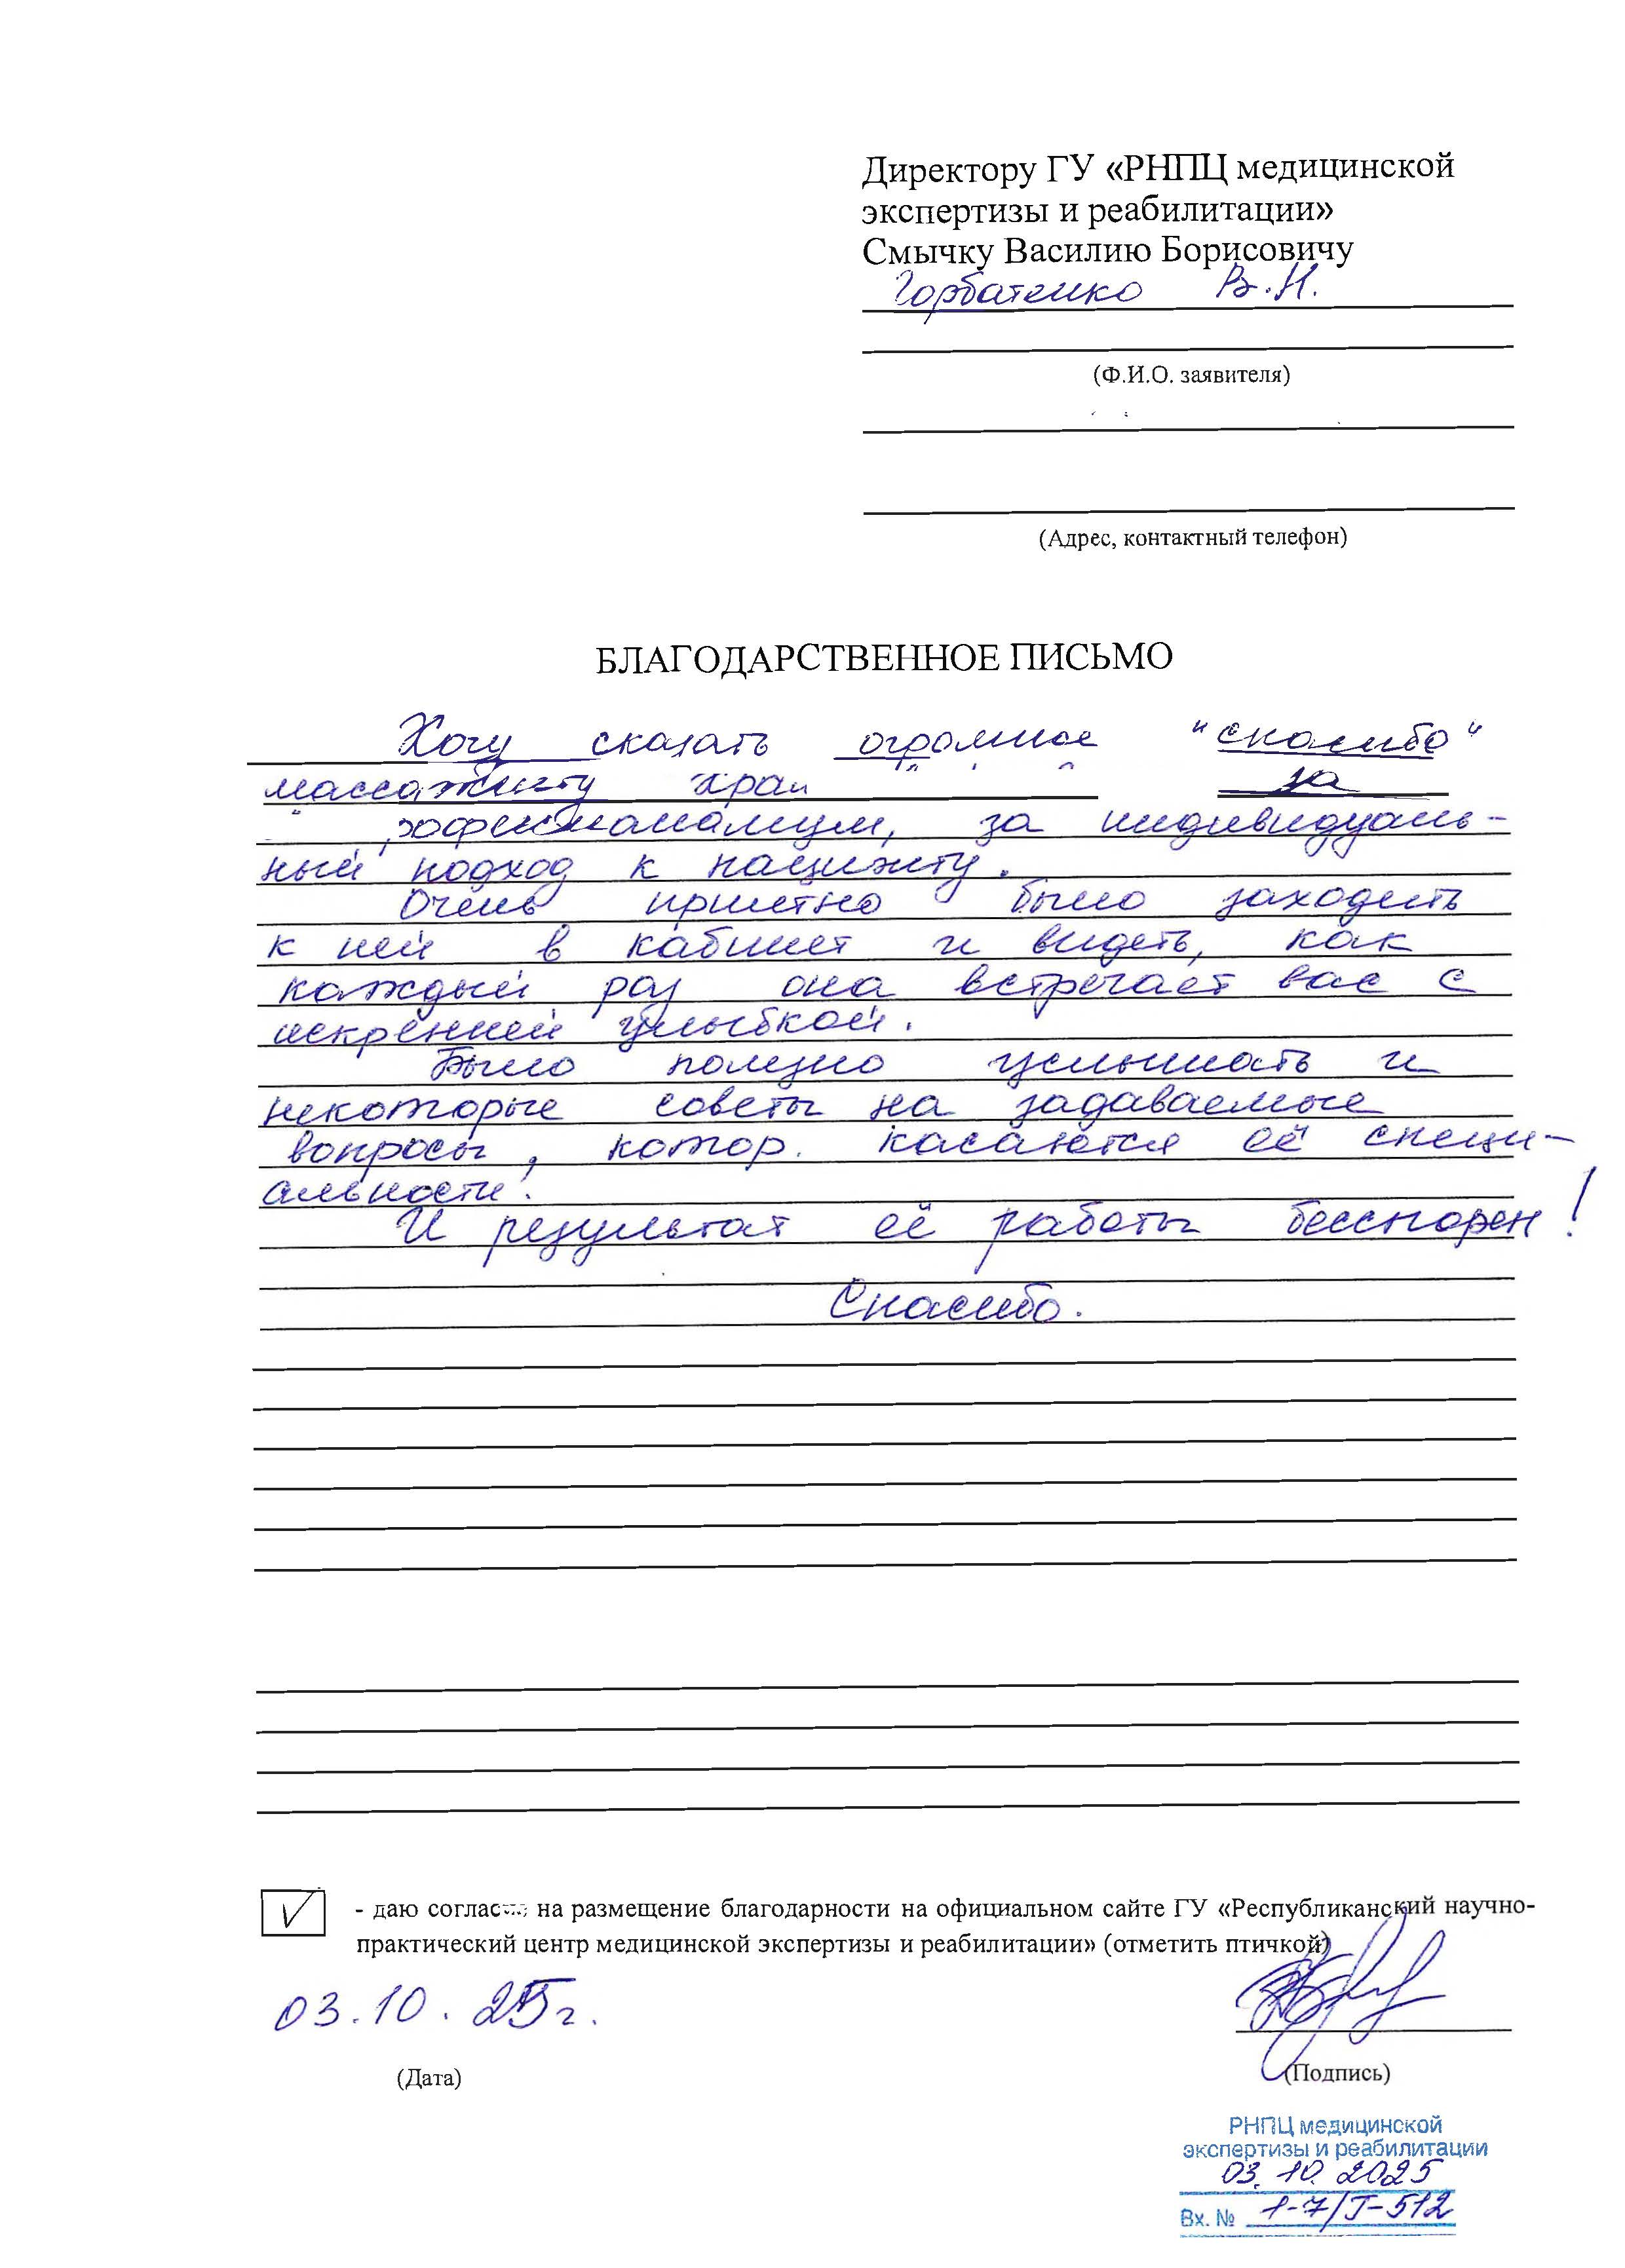 Директору ГУ «РНПЦ медицинской
экспертизы и реабилитации»
Смычку Василию Борисовичу
Горбатенко В.Н.
(Ф.И.О. заявителя)
(Адрес, контактный телефон)
БЛАГОДАРСТВЕННОЕ ПИСЬМО
Хочу сказать огромное "спасибо"
массажисту за
за индивидуаль-
ный подход к пациенту.
Очень приятно было заходить
к ней в кабинет и видеть, как
каждый раз она встречает вас с
искренней улыбкой.
Было полезно услышать и
некоторые советы на задаваемые
вопросы, котор. касаются её специ-
альности.
И результат её работы бесспорен!
Спасибо.
- даю на размещение благодарности на официальном сайте ГУ «Республиканский научно-
практический центр медицинской экспертизы и реабилитации» (отметить птичкой)
03.10.25г.
(Дата)
(Подпись)
РНПЦ медицинской
экспертизы и реабилитации
03.10.2025
Вх. № 1-7/Г-512